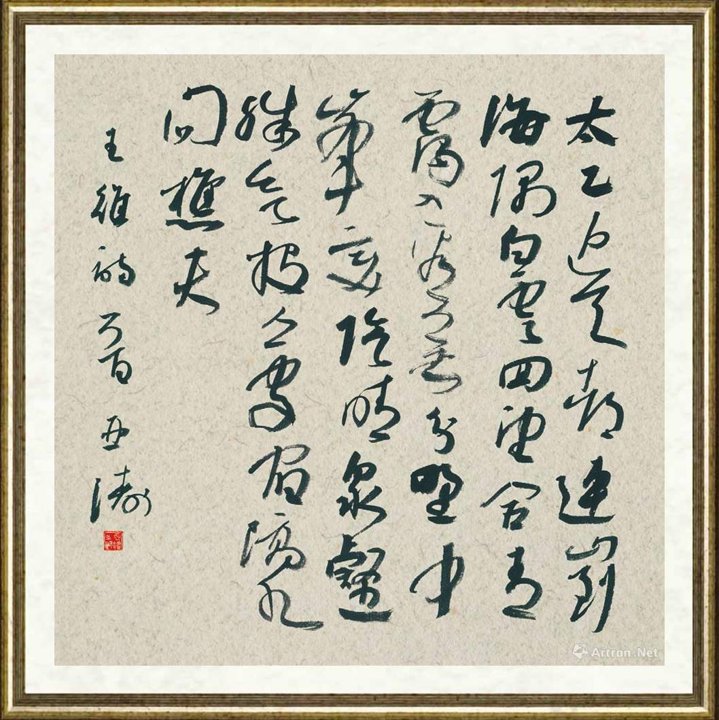 太乙近天都連山到
海隅白雲回望合青
靄入看無分野中
峯變陰晴衆壑
殊欲投人處宿隔水
問樵夫
王維詩 亞濤
Artron.Net